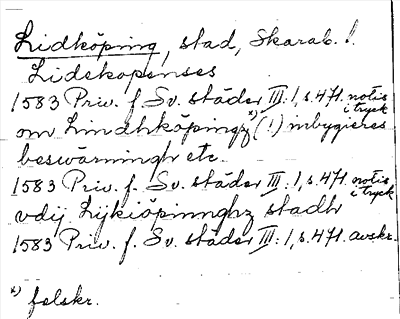 Lidköping, stad, Skarab. l.
Lidekopenses
1583 Priv. f. Sv. städer III:1, s. 471. notis i tryck
om Lindhköpingz *) (!) inbygieres
beswärningh etc.
1583 Priv. f. Sv. städer III:1, s. 471. notis i tryck
vdij Lijkiöpinnghz stadh
1583 Priv. f. Sv. städer III:1, s. 471. avskr.
*) felskr.